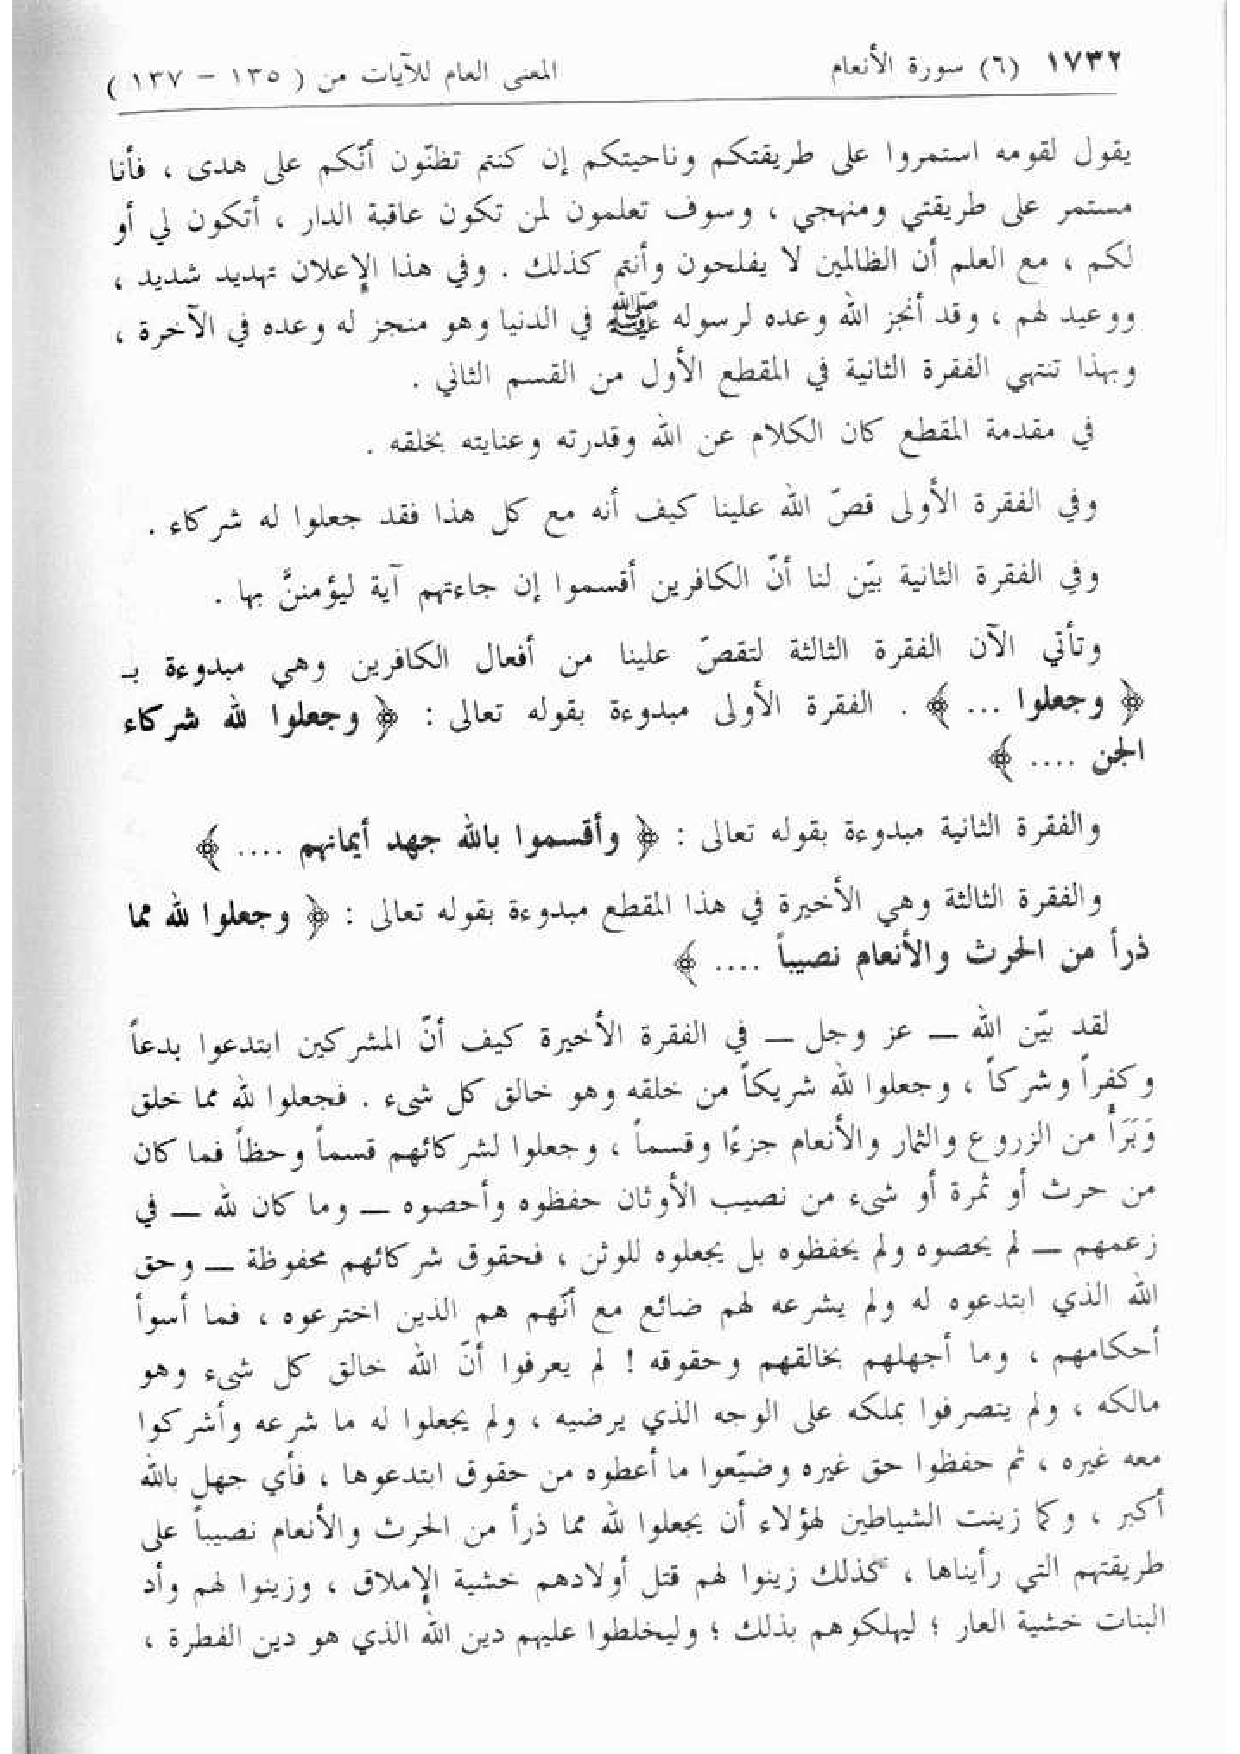 ١٧٣٢ (٦) سورة الأنعام المعنى العام للآيات من ( ١٣٥ – ١٣٧ )
يقول لقومه استمروا على طريقتكم وناحيتكم إن كنتم تظنّون أنّكم على هدى ، فأنا
مستمر على طريقتي ومنهجي ، وسوف تعلمون لمن تكون عاقبة الدار ، أتكون لي أو
لكم ، مع العلم أن الظالمين لا يفلحون وأنتم كذلك . وفي هذا الإعلان تهديد شديد ،
ووعيد لهم ، وقد أنجز الله وعده لرسوله ﷺ في الدنيا وهو منجز له وعده في الآخرة ،
وبهذا تنتهي الفقرة الثانية في المقطع الأول من القسم الثاني .
في مقدمة المقطع كان الكلام عن الله وقدرته وعنايته بخلقه .
وفي الفقرة الأولى قصّ الله علينا كيف أنه مع كل هذا فقد جعلوا له شركاء .
وفي الفقرة الثانية بيّن لنا أنّ الكافرين أقسموا إن جاءتهم آية ليؤمننَّ بها .
وتأتي الآن الفقرة الثالثة لتقصّ علينا من أفعال الكافرين وهي مبدوءة بـ
﴿ وجعلوا ... ﴾ . الفقرة الأولى مبدوءة بقوله تعالى : ﴿ وجعلوا لله شركاء
الجن .... ﴾
والفقرة الثانية مبدوءة بقوله تعالى : ﴿ وأقسموا بالله جهد أيمانهم .... ﴾
والفقرة الثالثة وهي الأخيرة في هذا المقطع مبدوءة بقوله تعالى : ﴿ وجعلوا لله مما
ذرأ من الحرث والأنعام نصيباً .... ﴾
لقد بيّن الله ـ عز وجل ـ في الفقرة الأخيرة كيف أنّ المشركين ابتدعوا بدعاً
وكفراً وشركاً ، وجعلوا لله شريكاً من خلقه وهو خالق كل شىء . فجعلوا لله مما خلق
وَبَرَأَ من الزروع والثمار والأنعام جزءًا وقسماً ، وجعلوا لشركائهم قسماً وحظاً فما كان
من حرث أو ثمرة أو شىء من نصيب الأوثان حفظوه وأحصوه ـ وما كان لله ـ في
زعمهم ـ لم يحصوه ولم يحفظوه بل يجعلوه للوثن ، فحقوق شركائهم محفوظة ـ وحق
الله الذي ابتدعوه له ولم يشرعه لهم ضائع مع أنّهم هم الذين اخترعوه ، فما أسوأ
أحكامهم ، وما أجهلهم بخالقهم وحقوقه ! لم يعرفوا أنّ الله خالق كل شىء وهو
مالكه ، ولم يتصرفوا بملكه على الوجه الذي يرضيه ، ولم يجعلوا له ما شرعه وأشركوا
معه غيره ، ثم حفظوا حق غيره وضيّعوا ما أعطوه من حقوق ابتدعوها ، فأي جهل بالله
أكبر ، وكما زينت الشياطين لهؤلاء أن يجعلوا لله مما ذرأ من الحرث والأنعام نصيباً على
طريقتهم التي رأيناها ، كذلك زينوا لهم قتل أولادهم خشية الإملاق ، وزينوا لهم وأد
البنات خشية العار ؛ ليهلكوهم بذلك ؛ وليخلطوا عليهم دين الله الذي هو دين الفطرة ،